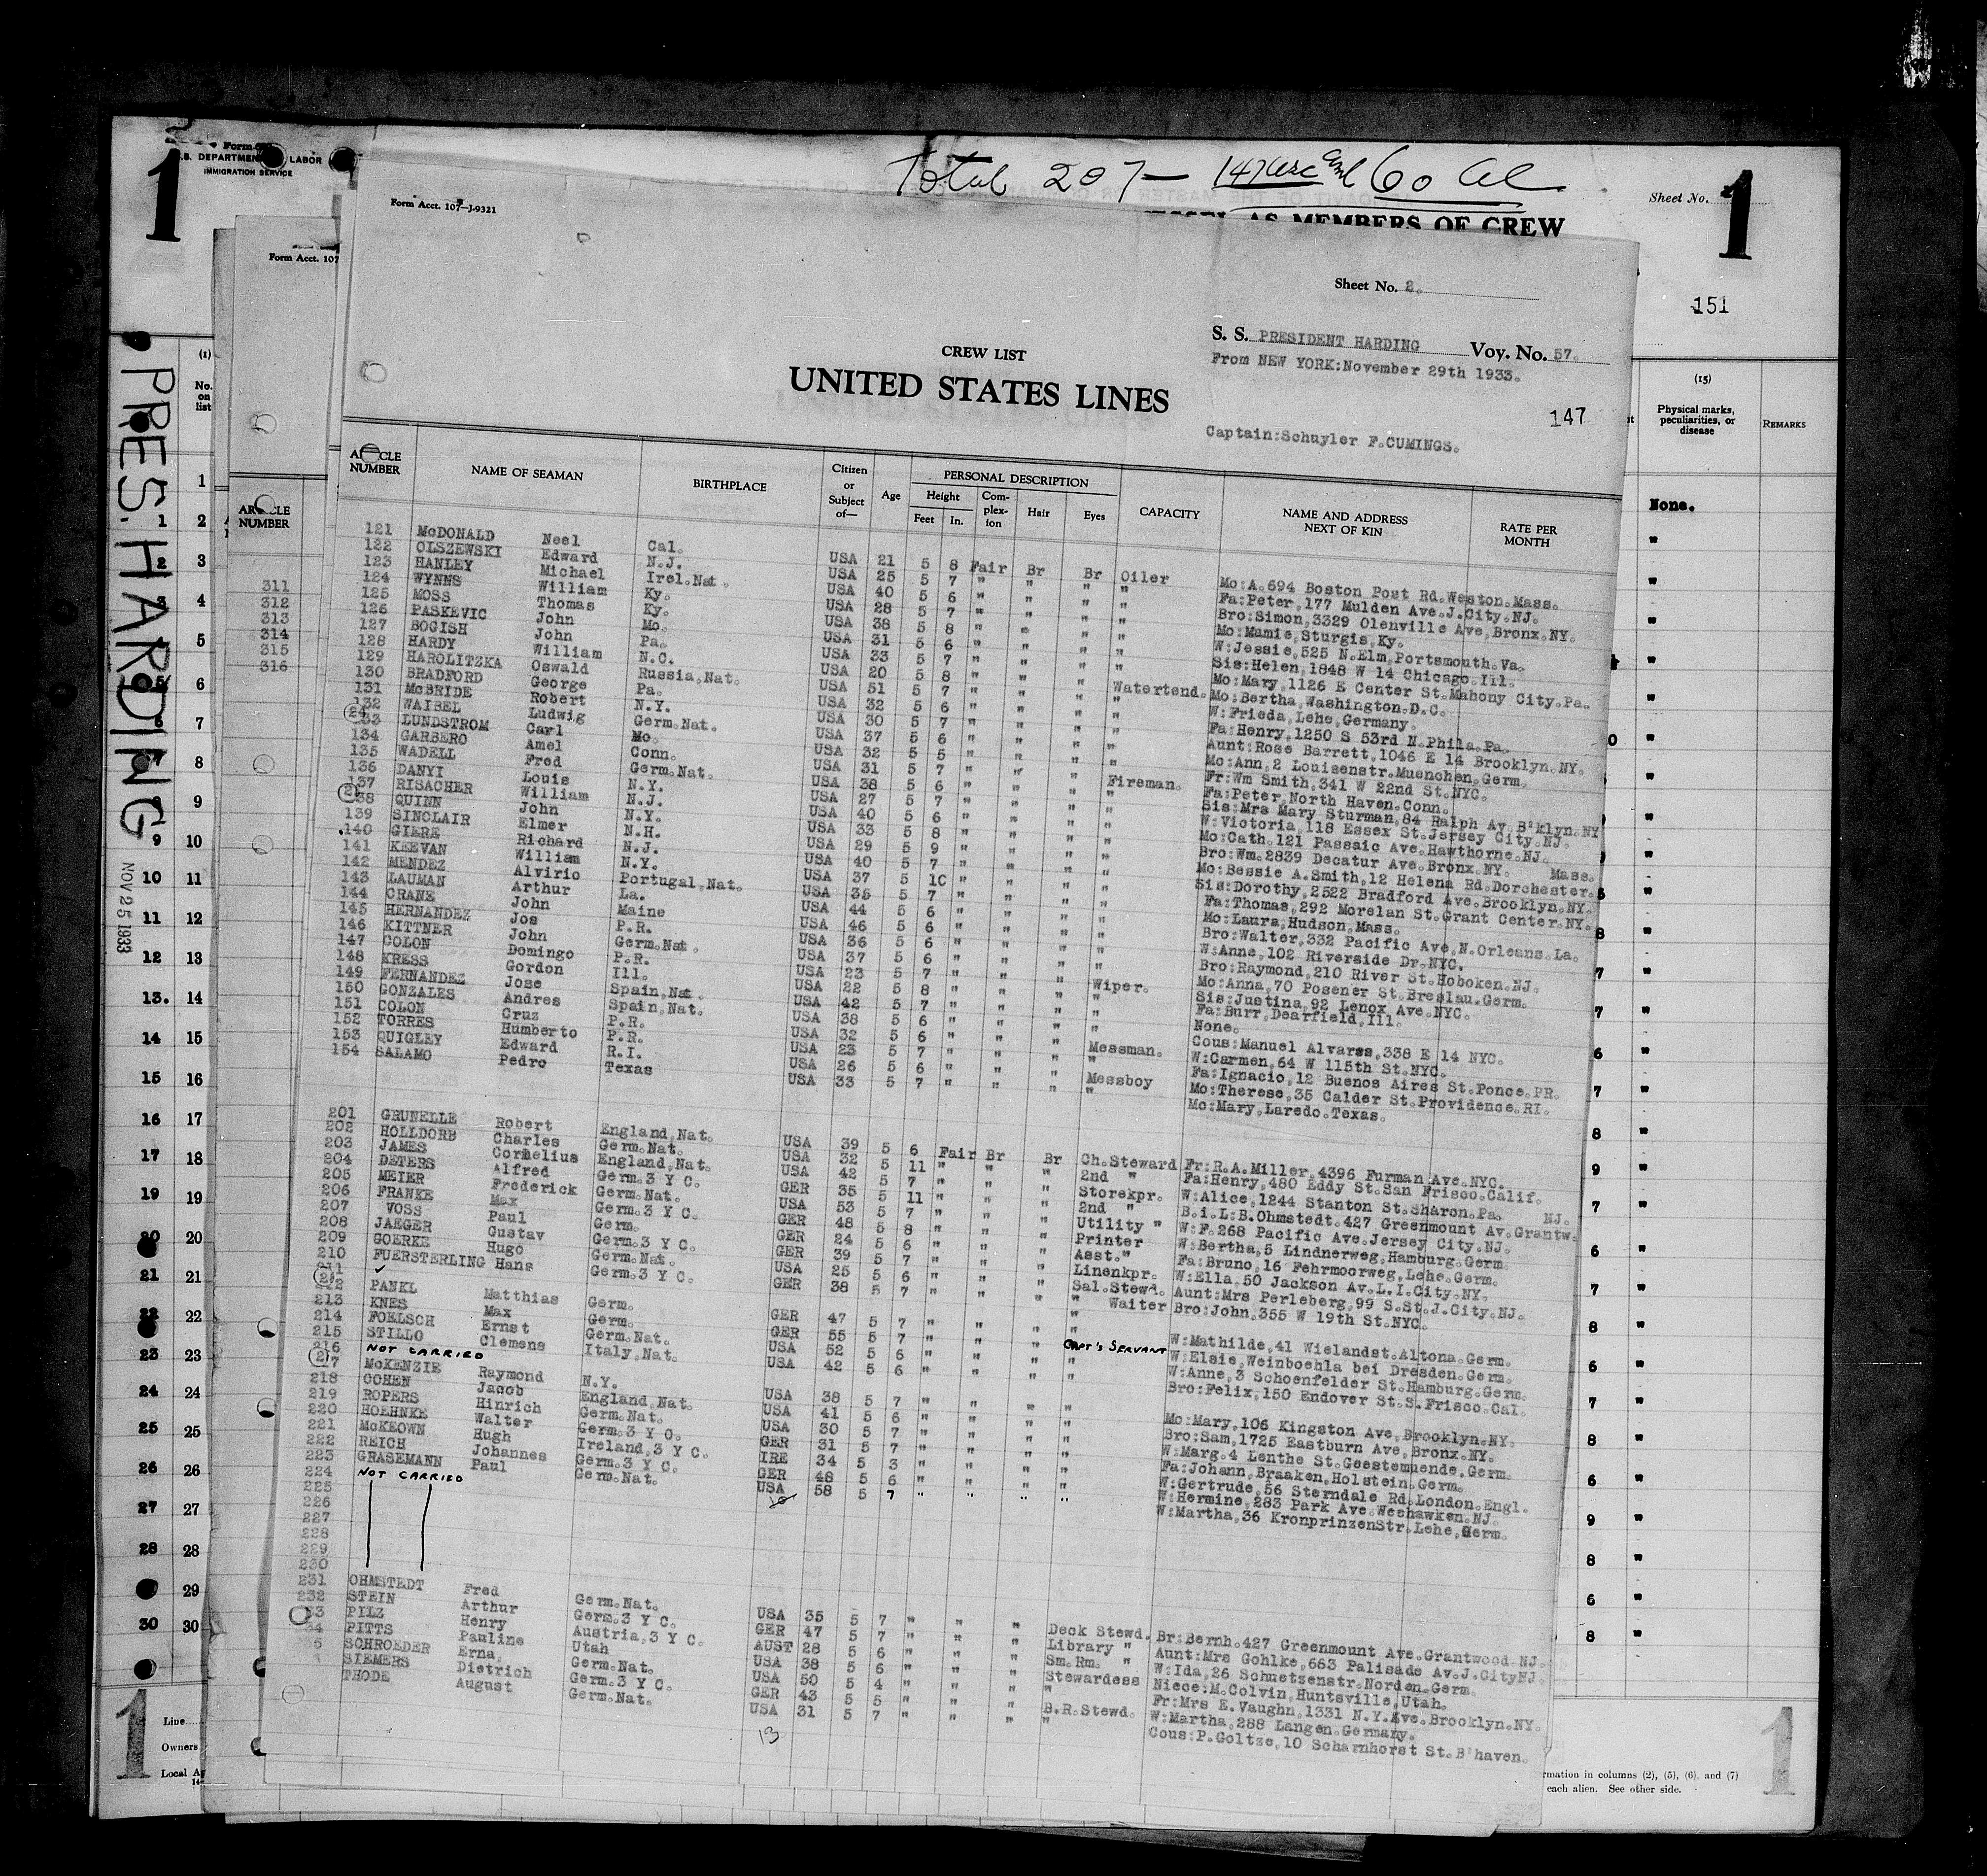 Total 207 — 147 usc and 60 al
Form
U.S. DEPARTMENT LABOR
IMMIGRATION SERVICE
1
AS MEMBERS OF CREW
Sheet No.
1
151
Form Acct. 107
Form Acct. 107—J-9321
Sheet No. 2.
S. S. PRESIDENT HARDING Voy. No. 57.
From NEW YORK:November 29th 1933.
CREW LIST
UNITED STATES LINES
147
Captain:Schuyler F.CUMINGS.
PRES. HARDING
NOV 25 1933
(1) No. on list
(15) Physical marks, peculiarities, or disease
REMARKS
None.
ARTICLE NUMBER
311
312
313
314
315
316
ARTICLE NUMBER NAME OF SEAMAN BIRTHPLACE Citizen or Subject of— Age PERSONAL DESCRIPTION Height Feet In. Complexion Hair Eyes CAPACITY NAME AND ADDRESS NEXT OF KIN RATE PER MONTH
121 McDONALD Neel Cal. USA 21 5 8 Fair Br Br Oiler Mo:A.694 Boston Post Rd.Weston.Mass.
122 OLSZEWSKI Edward N.J. USA 25 5 7 " " " " Fa:Peter,177 Mulden Ave.J.City.NJ.
123 HANLEY Michael Irel.Nat. USA 40 5 6 " " " " Bro:Simon,3329 Olenville Ave,Bronx.NY.
124 WYNNS William Ky. USA 28 5 7 " " " " Mo:Mamie,Sturgis,Ky.
125 MOSS Thomas Ky. USA 38 5 8 " " " " W:Jessie,525 N.Elm,Portsmouth.Va.
126 PASKEVIC John Mo. USA 31 5 6 " " " " Sis:Helen,1848 W 14 Chicago.Ill.
127 BOGISH John Pa. USA 33 5 7 " " " " Mo:Mary,1126 E Center St.Mahony City.Pa.
128 HARDY William N.C. USA 20 5 8 " " " Watertend. Mo:Bertha,Washington.D.C.
129 HAROLITZKA Oswald Russia.Nat. USA 51 5 7 " " " " W:Frieda,Lehe,Germany.
130 BRADFORD George Pa. USA 32 5 6 " " " " Fa:Henry,1250 S 53rd N.Phila.Pa.
131 McBRIDE Robert N.Y. USA 30 5 7 " " " " Aunt:Rose Barrett,1046 E 14 Brooklyn.NY.
132 WAIBEL Ludwig Germ.Nat. USA 37 5 6 " " " " Mo:Ann,2 Louisenstr.Muenchen.Germ.
133 LUNDSTROM Carl Mo. USA 32 5 5 " " " " Fr:Wm Smith,341 W 22nd St.NYC.
134 GARBERO Amel Conn. USA 31 5 7 " " " Fireman. Fa:Peter,North Haven.Conn.
135 WADELL Fred Germ.Nat. USA 38 5 6 " " " " Sis:Mrs Mary Sturman,84 Ralph Av.B'klyn.NY
136 DANYI Louis N.Y. USA 27 5 7 " " " " W:Victoria,118 Essex St.Jersey City.NJ.
137 RISACHER William N.J. USA 40 5 6 " " " " Mo:Cath.121 Passaic Ave.Hawthorne.NJ.
138 QUINN John N.Y. USA 33 5 8 " " " " Bro:Wm.2839 Decatur Ave.Bronx.NY.
139 SINCLAIR Elmer N.H. USA 29 5 9 " " " " Mo:Bessie A.Smith,12 Helena Rd.Dorchester. Mass.
140 GIERE Richard N.J. USA 40 5 7 " " " " Sis:Dorothy,2522 Bradford Ave.Brooklyn.NY.
141 KEEVAN William N.Y. USA 37 5 10 " " " " Fa:Thomas,292 Morelan St.Grant Center.NY.
142 MENDEZ Alvirio Portugal.Nat. USA 35 5 7 " " " " Mo:Laura,Hudson,Mass.
143 LAUMAN Arthur La. USA 44 5 6 " " " " Bro:Walter,332 Pacific Ave,N.Orleans.La.
144 CRANE John Maine USA 46 5 6 " " " " W:Anne,102 Riverside Dr.NYC.
145 HERNANDEZ Jos P.R. USA 36 5 6 " " " " Bro:Raymond,210 River St.Hoboken.NJ.
146 KITTNER John Germ.Nat. USA 37 5 6 " " " " Mo:Anna,70 Posener St.Breslau.Germ.
147 COLON Domingo P.R. USA 23 5 7 " " " Wiper. Sis:Justina,92 Lenox Ave.NYC.
148 KRESS Gordon Ill. USA 22 5 8 " " " " Fa:Burr,Dearfield,Ill.
149 FERNANDEZ Jose Spain.Nat. USA 42 5 7 " " " " None.
150 GONZALES Andres Spain.Nat. USA 38 5 6 " " " " Cous:Manuel Alvares,338 E 14 NYC.
151 COLON Cruz P.R. USA 32 5 6 " " " Messman. W:Carmen,64 W 115th St.NYC.
152 TORRES Humberto P.R. USA 23 5 7 " " " " Fa:Ignacio,12 Buenos Aires St.Ponce.PR.
153 QUIGLEY Edward R.I. USA 26 5 6 " " " Messboy Mo:Therese,35 Calder St.Providence.RI.
154 SALAMO Pedro Texas USA 33 5 7 " " " " Mo:Mary,Laredo.Texas.
201 GRUNELLE Robert England.Nat. USA 39 5 6 Fair Br Br Ch.Steward Fr:R.A.Miller,4396 Furman Ave.NYC.
202 HOLLDORB Charles Germ.Nat. USA 32 5 11 " " " 2nd " Fa:Henry,480 Eddy St.San Frisco.Calif.
203 JAMES Cornelius England.Nat. USA 42 5 7 " " " Storekpr. W:Alice,1244 Stanton St.Sharon.Pa.
204 DETERS Alfred Germ.3 Y C. GER 35 5 11 " " " 2nd " B.i.L:B.Ohmstedt.427 Greenmount Av.Grantw. NJ.
205 MEIER Frederick Germ.Nat. USA 53 5 7 " " " Utility " W:F.268 Pacific Ave.Jersey City.NJ.
206 FRANKE Max Germ.3 Y C. GER 48 5 8 " " " Printer W:Bertha,5 Lindnerweg,Hamburg.Germ.
207 VOSS Paul Germ. GER 24 5 6 " " " Asst." Fa:Bruno,16 Fehrmoorweg,Lehe.Germ.
208 JAEGER Gustav Germ.3 Y C. GER 39 5 7 " " " Linenkpr. W:Ella,50 Jackson Av.L.I.City.NY.
209 GOERKE Hugo Germ.Nat. USA 25 5 6 " " " Sal.Stewd. Aunt:Mrs Perleberg,99 S.St.J.City.NJ.
210 FUERSTERLING Hans Germ.3 Y C. GER 38 5 7 " " " " Waiter Bro:John.355 W 19th St.NYC.
211 ✓
212 PANKL Matthias Germ. GER 47 5 7 " " " " W:Mathilde,41 Wielandst.Altona.Germ.
213 KNES Max Germ. GER 55 5 7 " " " CAPT'S SERVANT W:Elsie,Weinboehla bei Dresden.Germ.
214 FOELSCH Ernst Germ.Nat. USA 52 5 6 " " " " W:Anne,3 Schoenfelder St.Hamburg.Germ.
215 STILLO Clemens Italy.Nat. USA 42 5 6 " " " " Bro:Felix,150 Endover St.S.Frisco.Cal.
216 NOT CARRIED
217 McKENZIE Raymond N.Y. USA 38 5 7 " " " " Mo:Mary,106 Kingston Ave,Brooklyn.NY.
218 COHEN Jacob England.Nat. USA 41 5 6 " " " " Bro:Sam,1725 Eastburn Ave,Bronx.NY.
219 ROPERS Hinrich Germ.Nat. USA 30 5 7 " " " " W:Marg.4 Lenthe St.Geestemuende,Germ.
220 HOEHNKE Walter Germ.3 Y C. GER 31 5 7 " " " " Fa:Johann,Braaken.Holstein.Germ.
221 McKEOWN Hugh Ireland.3 Y C. IRE 34 5 3 " " " " W:Gertrude,56 Sterndale Rd.London.Engl.
222 REICH Johannes Germ.3 Y C. GER 48 5 6 " " " " W:Hermine,283 Park Ave.Weehawken.NJ.
223 GRASEMANN Paul Germ.Nat. USA 58 5 7 " " " " W:Martha,36 KronprinzenStr.Lehe,Germ.
224 NOT CARRIED
225
226
227
228
229
230
231 OHMSTEDT Fred Germ.Nat. USA 35 5 7 " " " Deck Stewd. Br:Bernh.427 Greenmount Ave.Grantwood.NJ.
232 STEIN Arthur Germ.3 Y C. GER 47 5 7 " " " Library " Aunt:Mrs Gohlke,663 Palisade Av.J.CityNJ.
33 PILZ Henry Austria,3 Y C. AUST 28 5 6 " " " Sm.Rm. " W:Ida,26 Schnetzenstr.Norden.Germ.
34 PITTS Pauline Utah USA 38 5 6 " " " Stewardess Niece:M.Colvin,Huntsville,Utah.
5 SCHROEDER Erna, Germ.Nat. USA 50 5 4 " " " " Fr:Mrs E.Vaughn,1331 N.Y.Ave.Brooklyn.NY.
SIEMERS Dietrich Germ.3 Y C. GER 43 5 5 " " " B.R.Stewd. W:Martha,288 Langen.Germany.
THODE August Germ.Nat. USA 31 5 7 " " " " Cous:P.Goltze,10 Scharnhorst St.B'haven.
13
Line
Owners
Local Ag
1
rmation in columns (2), (5), (6), and (7)
each alien. See other side.
1